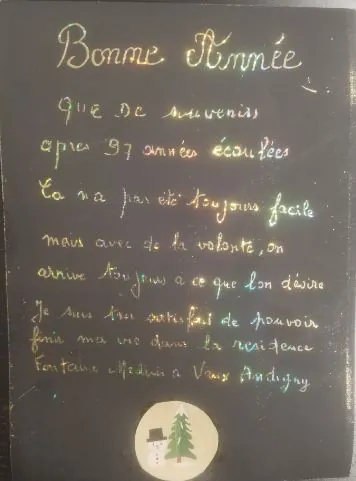 Bonne Année
QUE DE souvenirs
apres 97 années écoulées
Ca n a pas été toujours facile
mais avec de la volonté, on
arrive toujours a ce que lon désire
Je suis tres satisfait de pouvoir
finir ma vie dans la residence
Fontaine Medicis a Vaux Andigny